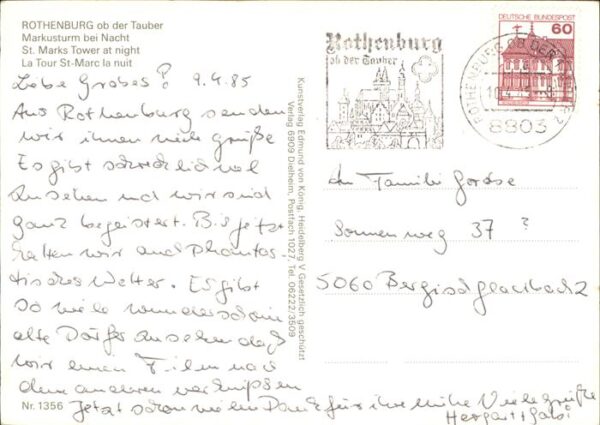 ROTHENBURG ob der Tauber
Markusturm bei Nacht
St. Marks Tower at night
La Tour St-Marc la nuit
Liebe 9.4.85
Aus Rothenburg senden
wir ihnen viele grüße
Es gibt schrecklich viel
Ansehen und wir sind
ganz begeistert. Bis jetzt
hatten wir auch Phantas
tisches Wetter. Es gibt
so viele wunderschöne
alte Dörfer Ansehen daß
wir einen Film nach
dem anderen verknipsen
Jetzt schon vielen Dank für ihre Mühe Viele grüße
Nr. 1356
Kunstverlag Edmund von König, Heidelberg V Gesetzlich geschützt
Verlag 6909 Dielheim, Postfach 1027, Tel. 06222/3509
Rothenburg
ob der Tauber
DEUTSCHE BUNDESPOST
60
ROTHENBURG OB DER
8803
An Familie
Sonnenweg 37 ?
5060 Bergisch gladbach 2